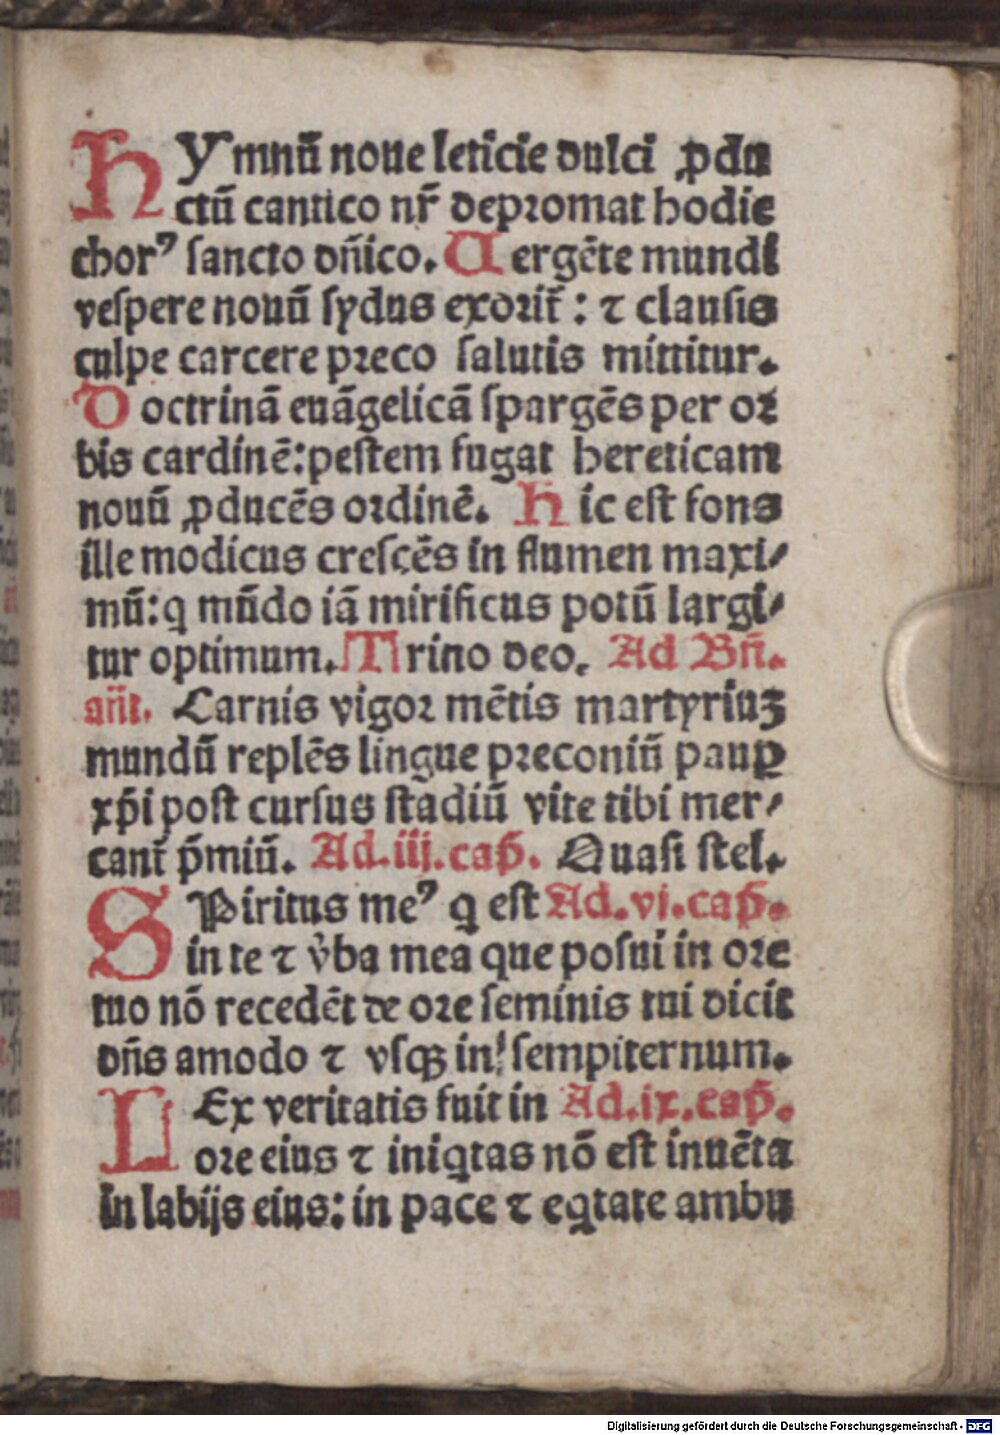 HYmnū noue leticie dulci ꝓdu
ctū cantico nr̄ depromat hodie
chorꝰ sancto dn̄ico. Uergēte mundi
vespere nouū sydus exorit̄: ⁊ clausis
culpe carcere preco salutis mittitur.
Doctrinā euāgelicā spargēs per or
bis cardinē: pestem fugat hereticam
nouū ꝓducēs ordinē. Hic est fons
ille modicus crescēs in flumen maxi/
mū: q mūdo iā mirificus potū largi/
tur optimum. Trino deo. Ad Bn̄.
an̄t. Carnis vigor mētis martyriuꝫ
mundū replēs lingue preconiū pauꝑ
xp̄i post cursus stadiū vite tibi mer/
cant̄ p̄miū. Ad.iij.cap̄. Quasi stel.
SPiritus meꝰ q est Ad.vj.cap̄.
in te ⁊ v̓ba mea que posui in ore
tuo nō recedēt de ore seminis tui dicit
dn̄s amodo ⁊ vsqꝫ in sempiternum.
LEx veritatis fuit in Ad.ix.cap̄.
ore eius ⁊ iniqtas nō est inuēta
in labijs eius: in pace ⁊ eqtate ambu
Digitalisierung gefördert durch die Deutsche Forschungsgemeinschaft - DFG